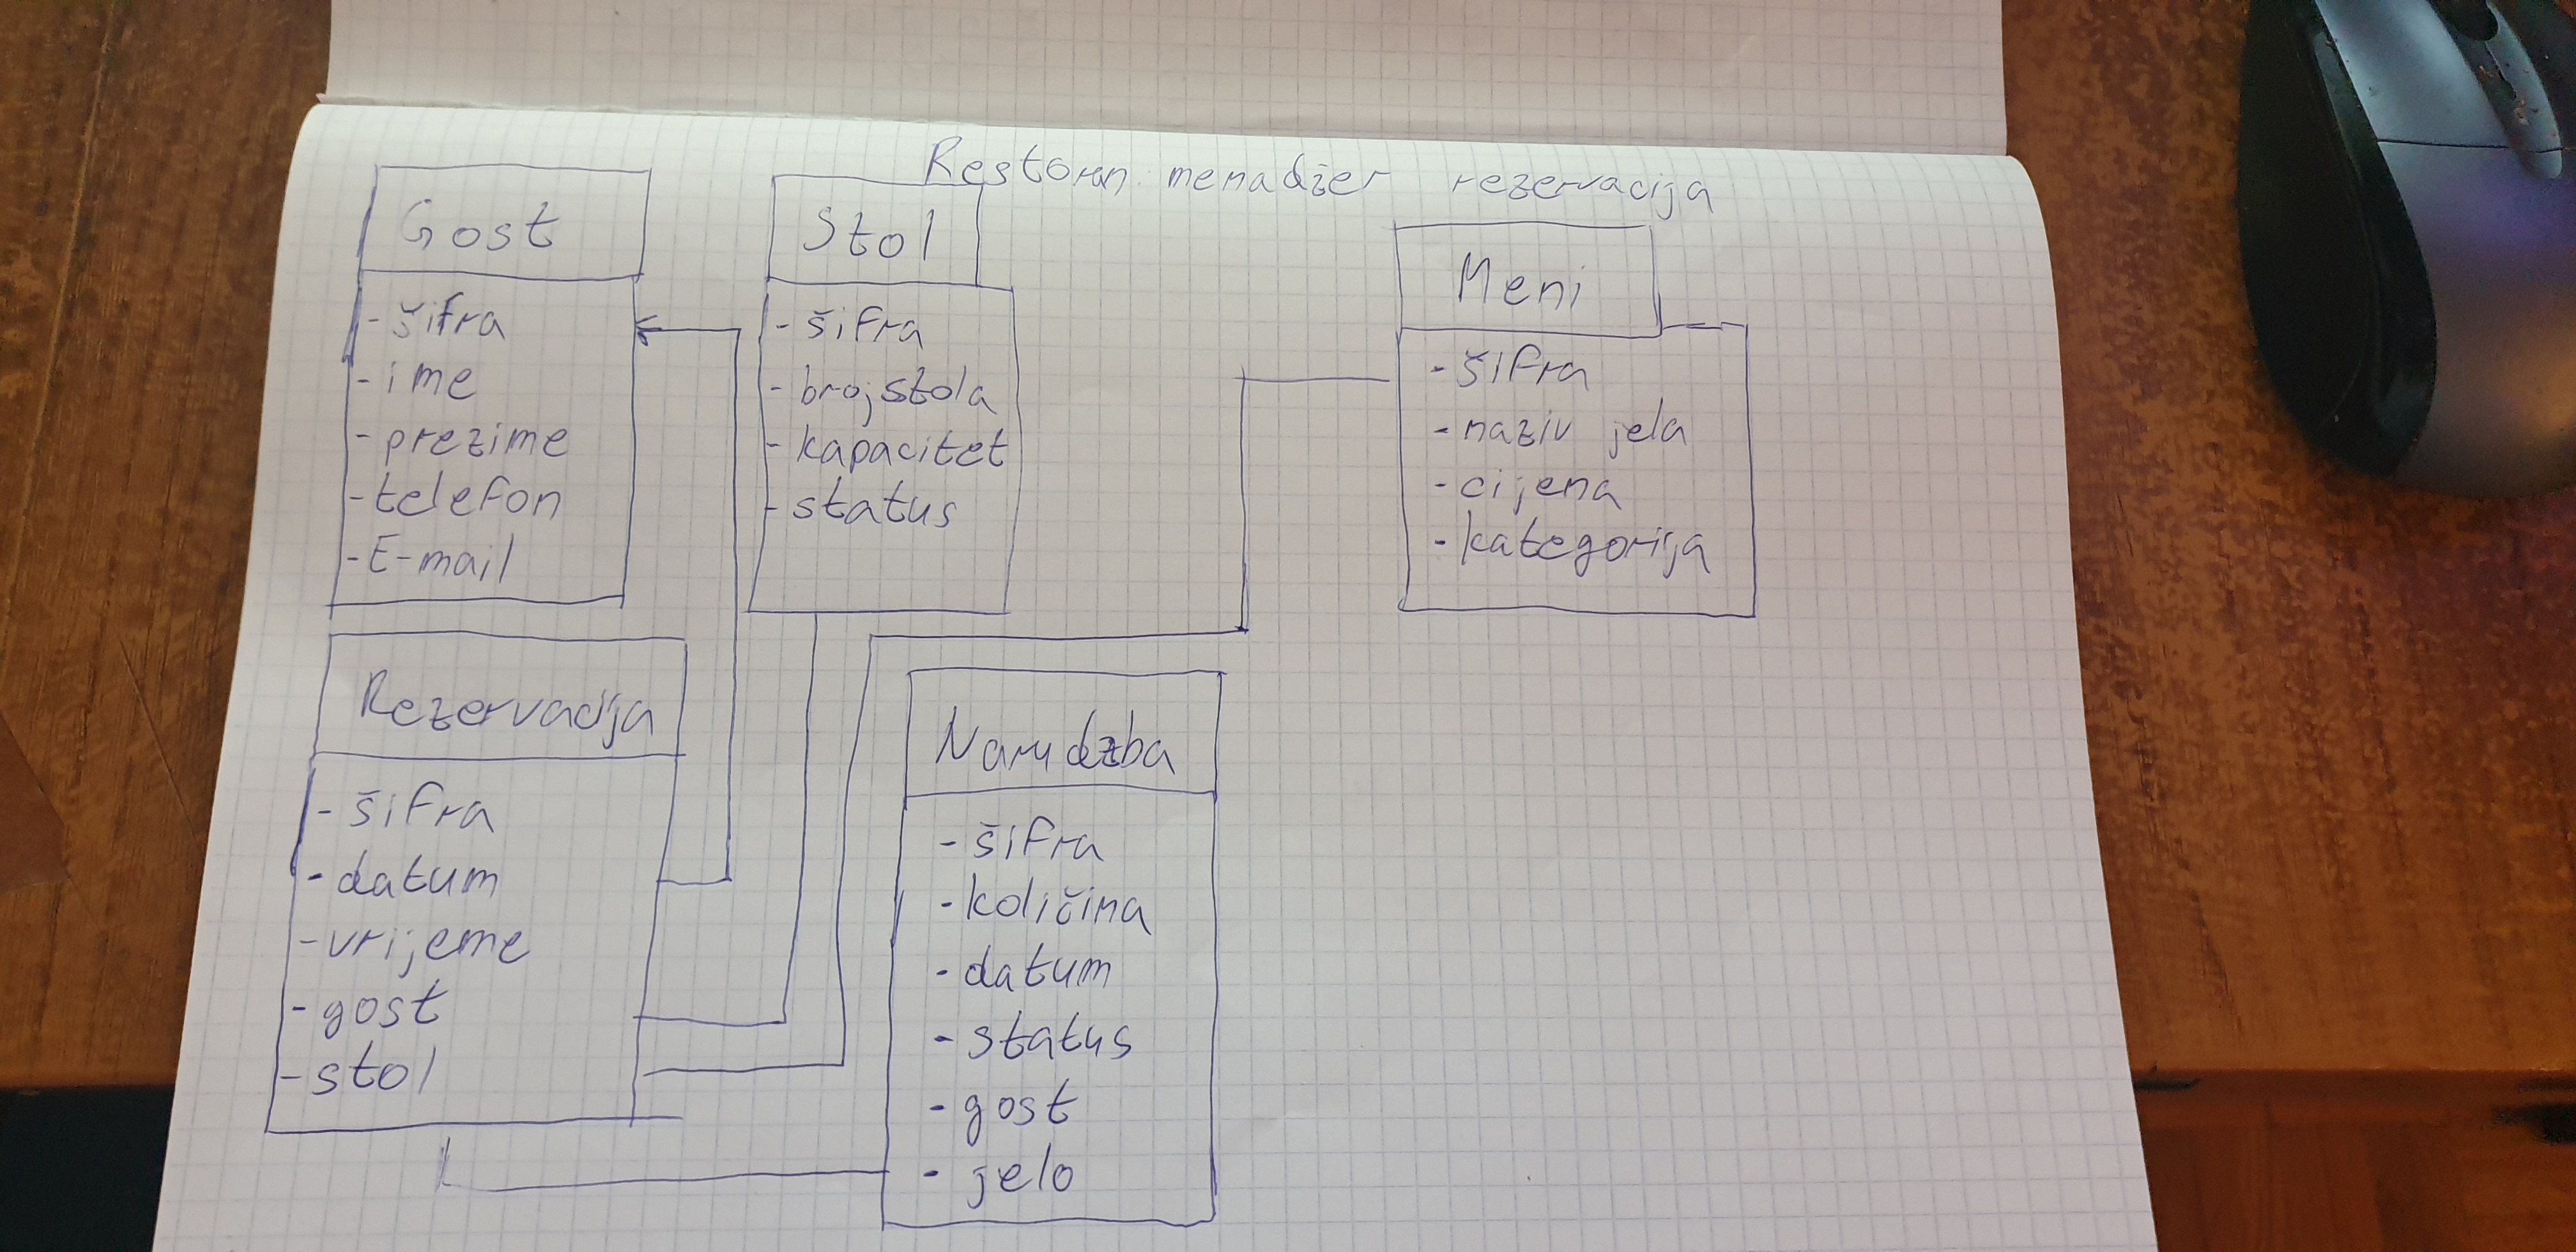 Restoran menadžer rezervacija
Gost
- šifra
- ime
- prezime
- telefon
- E-mail
Stol
- šifra
- broj stola
- kapacitet
- status
Meni
- šifra
- naziv jela
- cijena
- kategorija
Rezervacija
- šifra
- datum
- vrijeme
- gost
- stol
Narudzba
- šifra
- količina
- datum
- status
- gost
- jelo